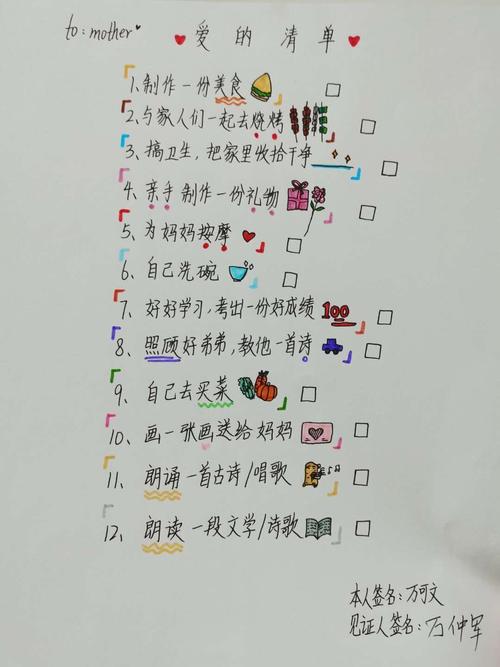 to: mother
爱的清单
1.制作一份美食
2.与家人们一起去烧烤
3、搞卫生,把家里收拾干净
4、亲手制作一份礼物
5、为妈妈按摩
6、自己洗碗
7、好好学习,考出一份好成绩 100
8、照顾好弟弟,教他一首诗
9、自己去买菜
10、画一张画送给妈妈
11、朗诵一首古诗/唱歌
12、朗读一段文学/诗歌
本人签名:万可文
见证人签名:万仲军